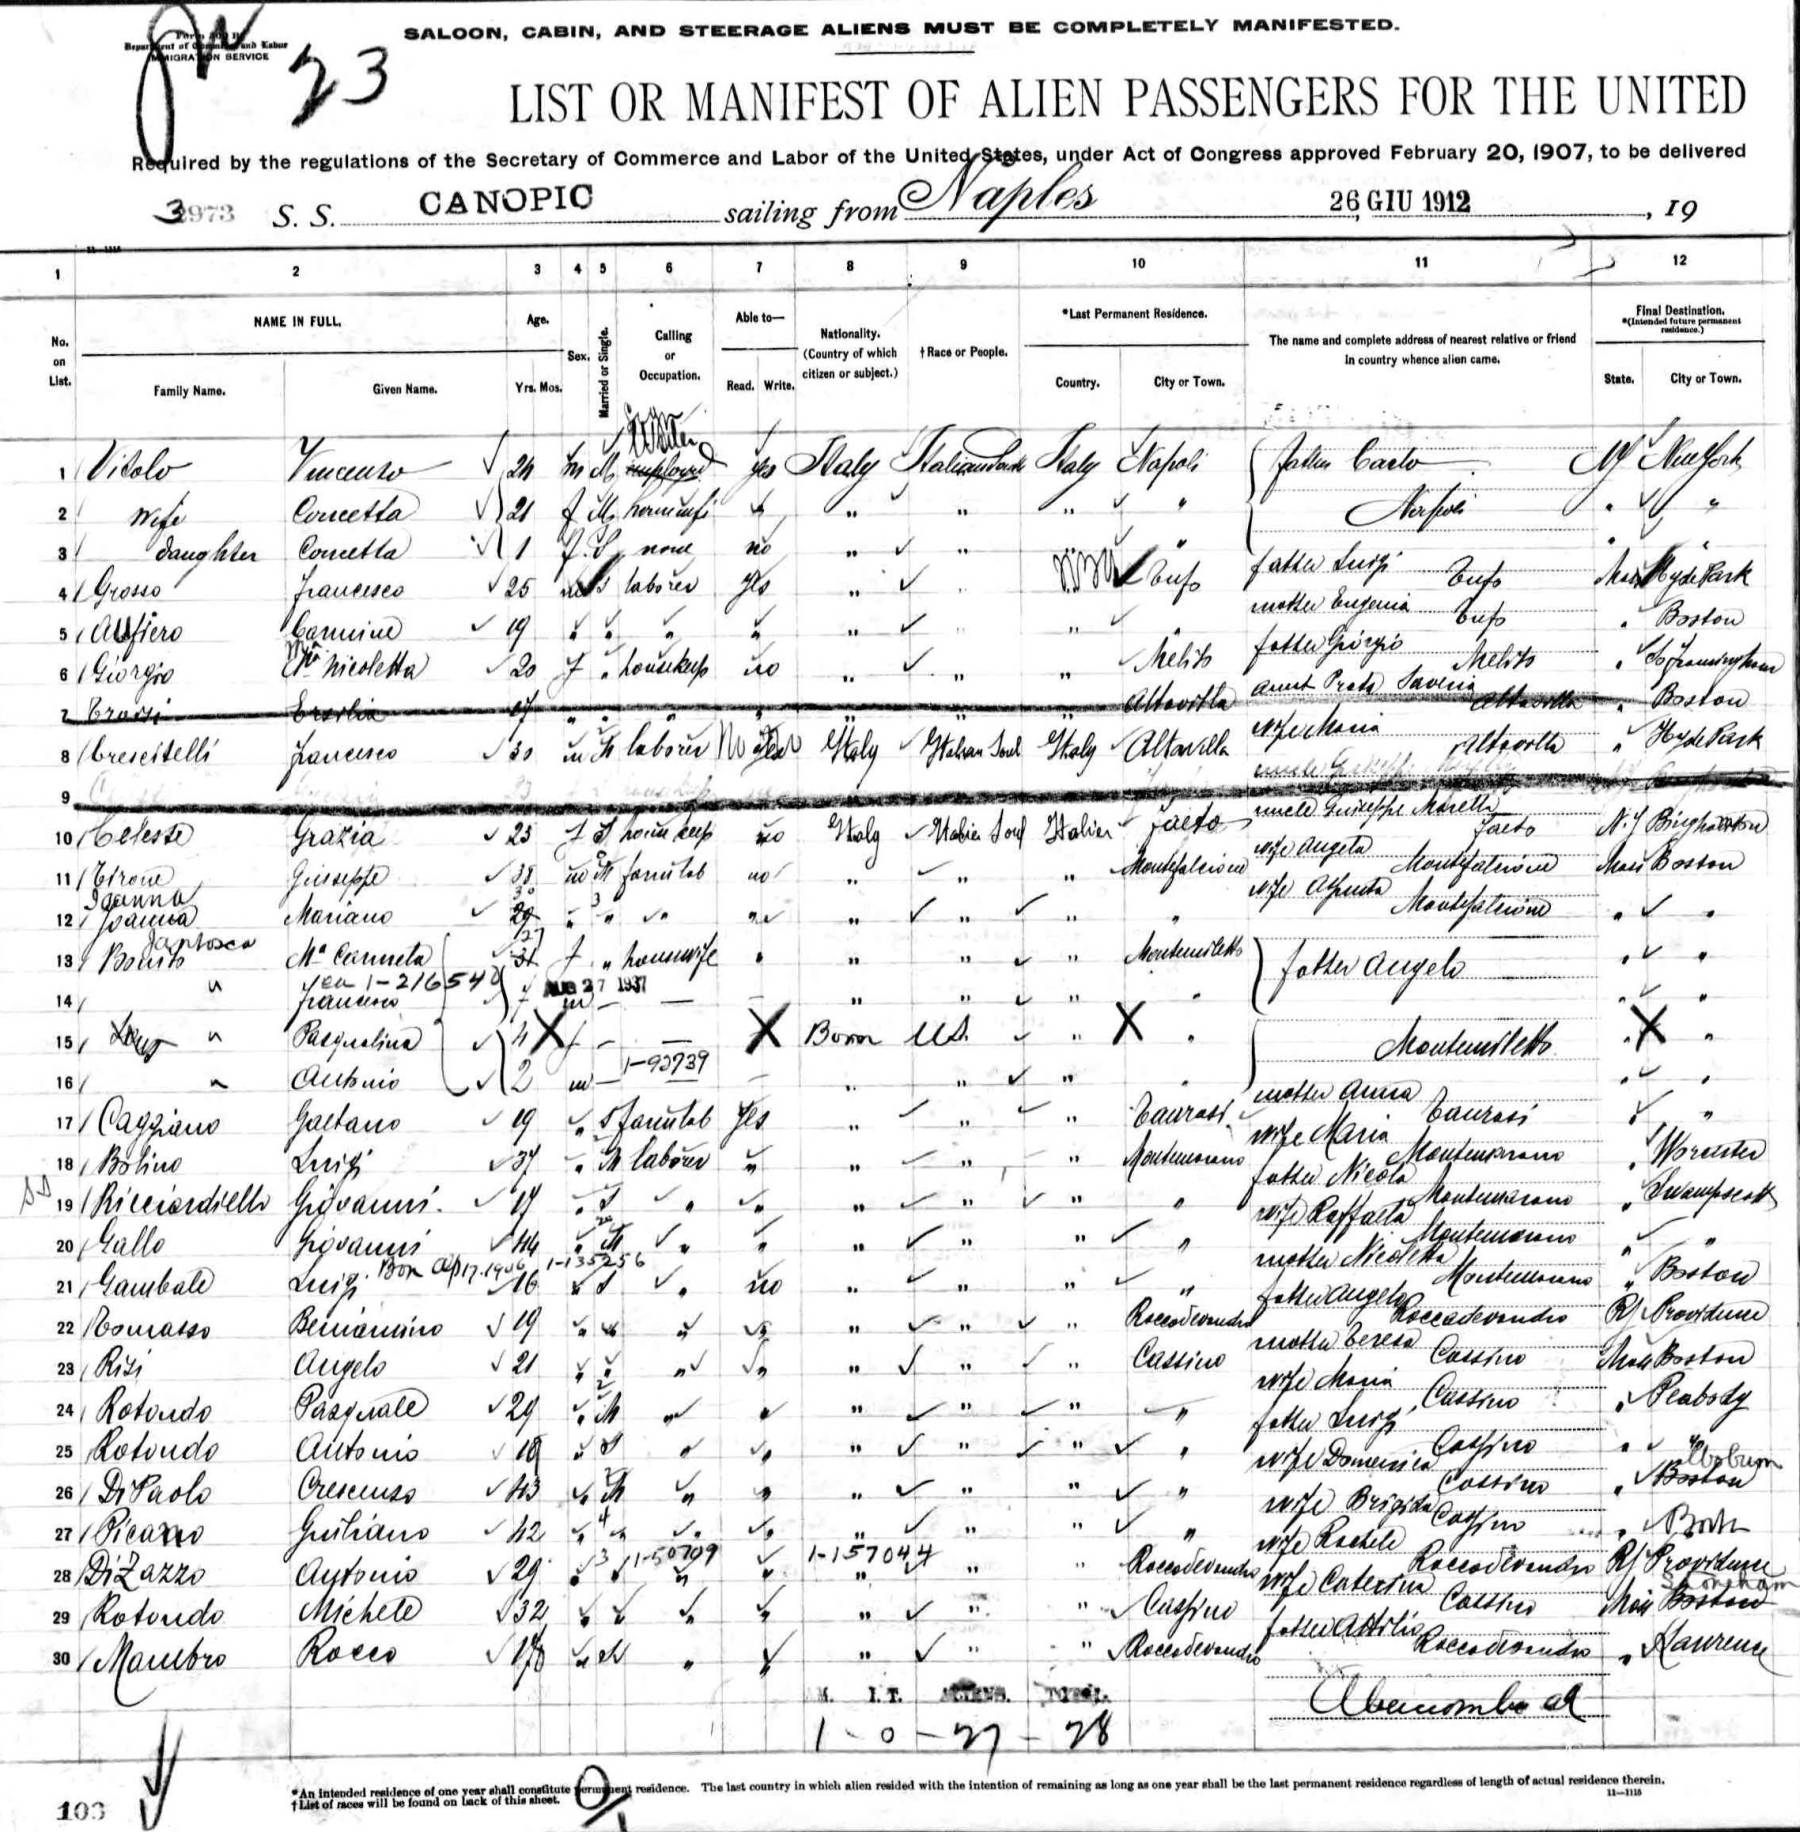 SALOON, CABIN, AND STEERAGE ALIENS MUST BE COMPLETELY MANIFESTED.
Department of Commerce and Labor
IMMIGRATION SERVICE
23
LIST OR MANIFEST OF ALIEN PASSENGERS FOR THE UNITED
Required by the regulations of the Secretary of Commerce and Labor of the United States, under Act of Congress approved February 20, 1907, to be delivered
3973 S. S. CANOPIC sailing from Naples 26 GIU 1912, 19
1 2 3 4 5 6 7 8 9 10 11 12
No. on List. NAME IN FULL. Family Name. Given Name. Age. Yrs. Mos. Sex. Married or Single. Calling or Occupation. Able to— Read. Write. Nationality. (Country of which citizen or subject.) †Race or People. *Last Permanent Residence. Country. City or Town. The name and complete address of nearest relative or friend in country whence alien came. Final Destination. *(Intended future permanent residence.) State. City or Town.
1 Vitolo Vincenzo 24 m M yes Italy Italian South Italy Napoli father Carlo NY New York
2 wife Concetta 21 f M " " " " Napoli " "
3 daughter Concetta 1 f S none no " " " "
4 Grosso Francesco 25 m S laborer yes " " Tufo father Luigi Tufo Mass Hyde Park
5 Alfiero Carmine 19 " " " " " " " mother Eugenia Tufo " Boston
6 Giorgio Ma Nicoletta 20 f " housekeep no " " " Melito father Giorgio Melito " So Framingham
7 Ersilia 17 " " " " " " " Altavilla aunt Altavilla " Boston
8 Crescitelli Francesco 30 m M laborer No Italy Italian Soul Italy Altavilla wife Maria Altavilla " Hyde Park
9
10 Celeste Grazia 23 f S housekeep no Italy Italian Soul Italian Faeto uncle Giuseppe Morella Faeto N.Y Binghamton
11 Tirone Giuseppe 38 m M farmlab no " " " Montefalcione wife Angela Montefalcione Mass Boston
12 Ioanna Mariano 30 " " " " " " " " wife Assunta Montefalcione " "
13 Bonito Santosca Ma Carmela 27 f " housewife " " " " Montemiletto father Angelo " "
14 " Francesco 1-216540 AUG 27 1937 m — — " " " " " "
15 " Pasqualina 4 f — — Born US. " " Montemiletto " "
16 " Antonio 2 m — 1-93739 — " " " " " "
17 Caggiano Gaetano 19 " S farmlab yes " " " Taurasi mother Anna Taurasi "
18 Bolino Luigi 37 " M laborer " " " " Montemarano wife Maria Montemarano " Worcester
19 Ricciardiello Giovanni 17 " S " " " " " " father Nicola Montemarano " Swampscott
20 Gallo Giovanni 44 " M " " " " " " wife Raffaela Montemarano " "
21 Gambale Luigi Born Ap 17-1906 1-135256 16 " S " no " " " " mother Nicoletta Montemarano " Boston
22 Tomasso Beniamino 19 " " " " " " " Roccadevandro father Angelo Roccadevandro RI Providence
23 Risi Angelo 21 " " " " " " " Cassino mother Teresa Cassino Mass Boston
24 Rotondo Pasquale 29 " M " " " " " " wife Maria Cassino " Peabody
25 Rotondo Antonio 18 " S " " " " " " father Luigi Cassino " "
26 DiPaolo Crescenzo 43 " M " " " " " " wife Domenica Cassino " Woburn Boston
27 Picano Giuliano 42 " " " " " " " " wife Brigida Cassino " Boston
28 DiZazzo Antonio 29 " " 1-50709 " " 1-157044 " " " Roccadevandro wife Rachele Roccadevandro RI Providence
29 Rotondo Michele 32 " " " " " " " Cassino wife Caterina Cassino Mass Stoneham Boston
30 Manubro Rocco " " " " " " Roccadevandro father Attilio Roccadevandro " Lawrence
I.T. ALIENS. TOTAL.
1 - 0 - 27 - 28
*An intended residence of one year shall constitute permanent residence. The last country in which alien resided with the intention of remaining as long as one year shall be the last permanent residence regardless of length of actual residence therein.
†List of races will be found on back of this sheet.
11—1115
103